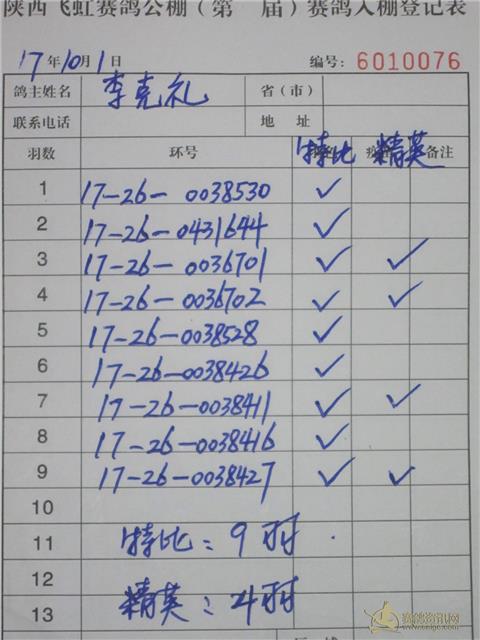 陕西飞虹赛鸽公棚(第 届)赛鸽入棚登记表
17年10月1日 编号:6010076
鸽主姓名 李克礼 省(市)
联系电话 地 址
羽数 环号 特比 精英 备注
1 17-26-0038530 ✓
2 17-26-0431644 ✓
3 17-26-0036701 ✓ ✓
4 17-26-0036702 ✓ ✓
5 17-26-0038528 ✓
6 17-26-0038426 ✓
7 17-26-0038411 ✓ ✓
8 17-26-0038416 ✓
9 17-26-0038427 ✓ ✓
10
11 特比:9羽.
12
13 精英:4羽
赛鸽资讯网